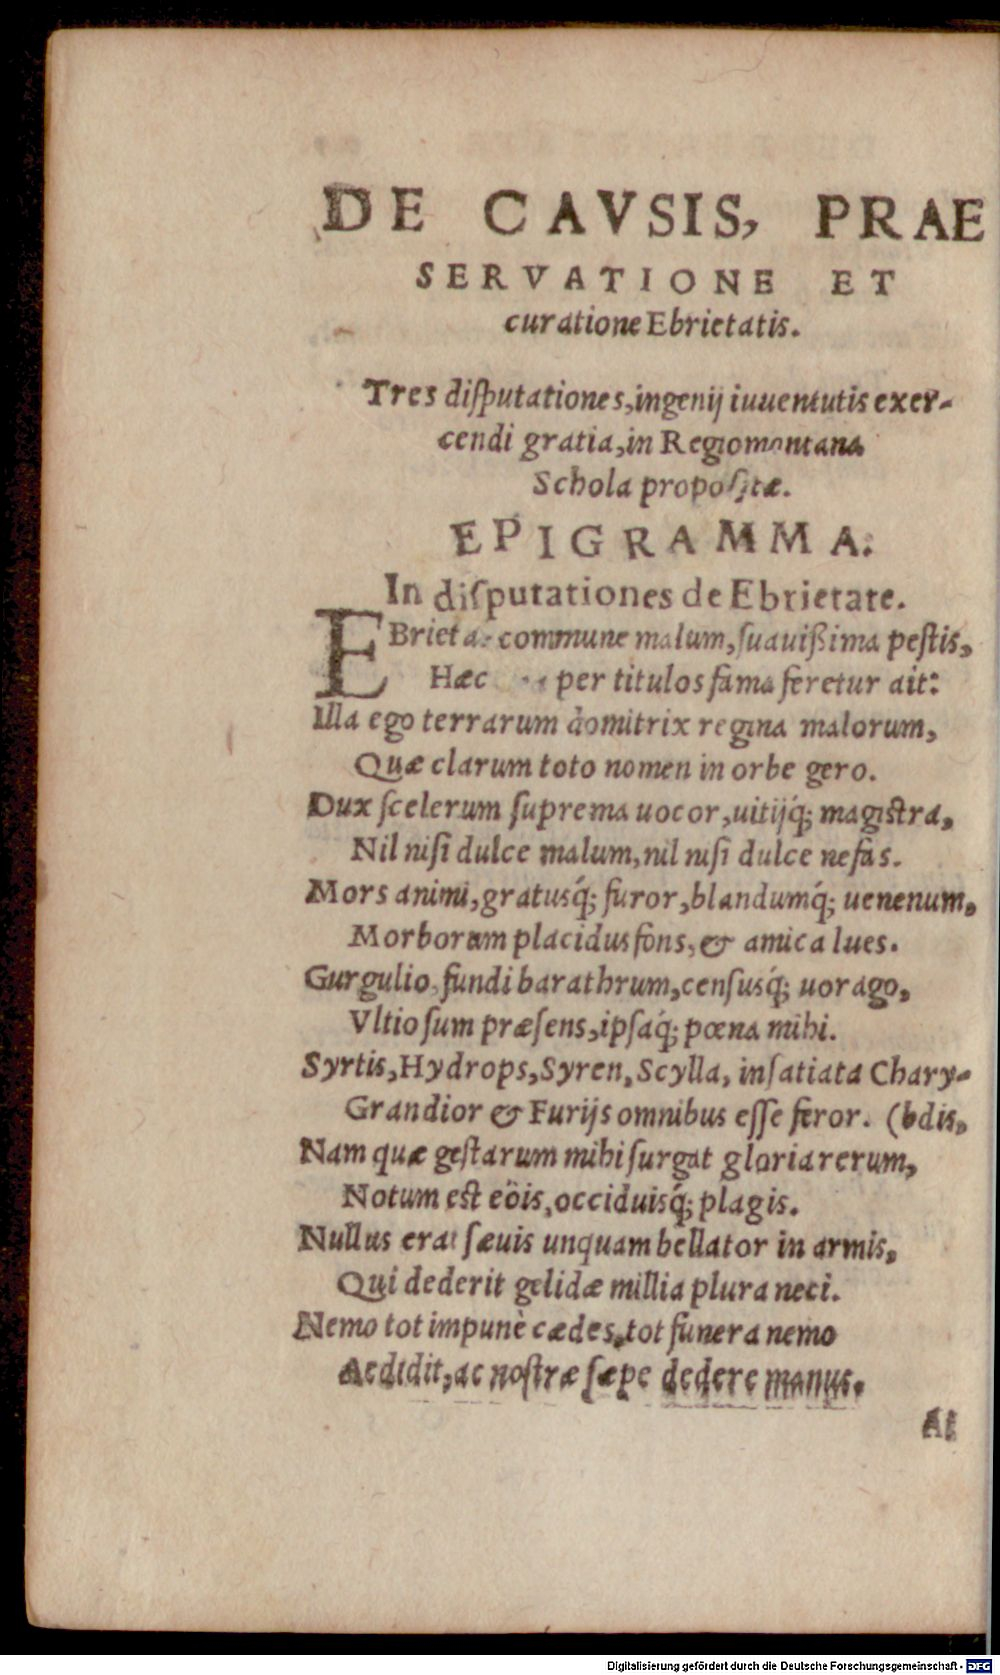 DE CAVSIS, PRAE
SERVATIONE ET
curatione Ebrietatis.
Tres diſputationes, ingenij iuuentutis exer-
cendi gratia, in Regiomontana
Schola propoſitæ.
EPIGRAMMA.
In diſputationes de Ebrietate.
EBrietas commune malum, ſuauiſsima peſtis,
Hæc per titulos fama feretur ait:
Illa ego terrarum domitrix regina malorum,
Quæ clarum toto nomen in orbe gero.
Dux ſcelerum ſuprema uocor, uitijq́; magiſtra,
Nil niſi dulce malum, nil niſi dulce nefas.
Mors animi, gratusq́; furor, blandumq́; uenenum,
Morborum placidus fons, & amica lues.
Gurgulio, fundi barathrum, cenſusq́; uorago,
Vltio ſum præſens, ipſaq́; pœna mihi.
Syrtis, Hydrops, Syren, Scylla, inſatiata Chary-
Grandior & Furijs omnibus eſſe feror. (bdis,
Nam quæ geſtarum mihi ſurgat gloria rerum,
Notum eſt eöis, occiduisq́; plagis.
Nullus erat ſæuis unquam bellator in armis,
Qui dederit gelidæ millia plura neci.
Nemo tot impunè cædes, tot funera nemo
Aedidit, ac noſtræ ſæpe dedere manus.
At
Digitalisierung gefördert durch die Deutsche Forschungsgemeinschaft - DFG